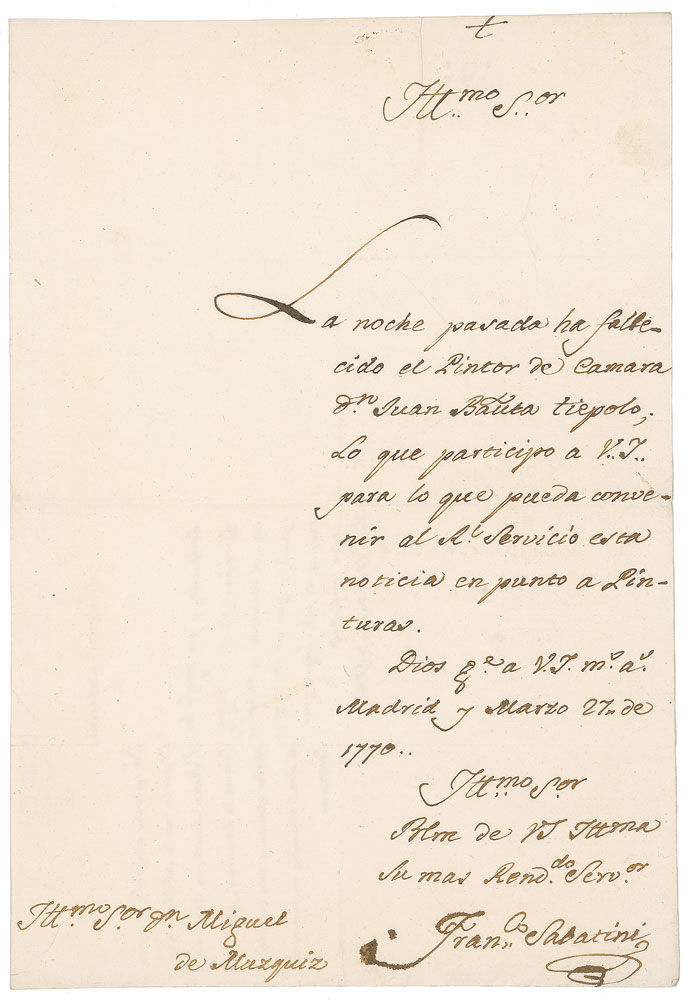 Illmo Sor
La noche pasada ha falle-
cido el Pintor de Camara
Dn Juan Bauta tiepolo,
Lo que participo a V.I.
para lo que pueda conve-
nir al Rl Servicio esta
noticia en punto a Pin-
turas.
Dios gue a V.I. ms as
Madrid y Marzo 27 de
1770..
Illmo Sor
Blm de VI Illma
Su mas Rend.do Serv.or
Franco Sabatini
Illmo Sor Dn Miguel
de Muzquiz